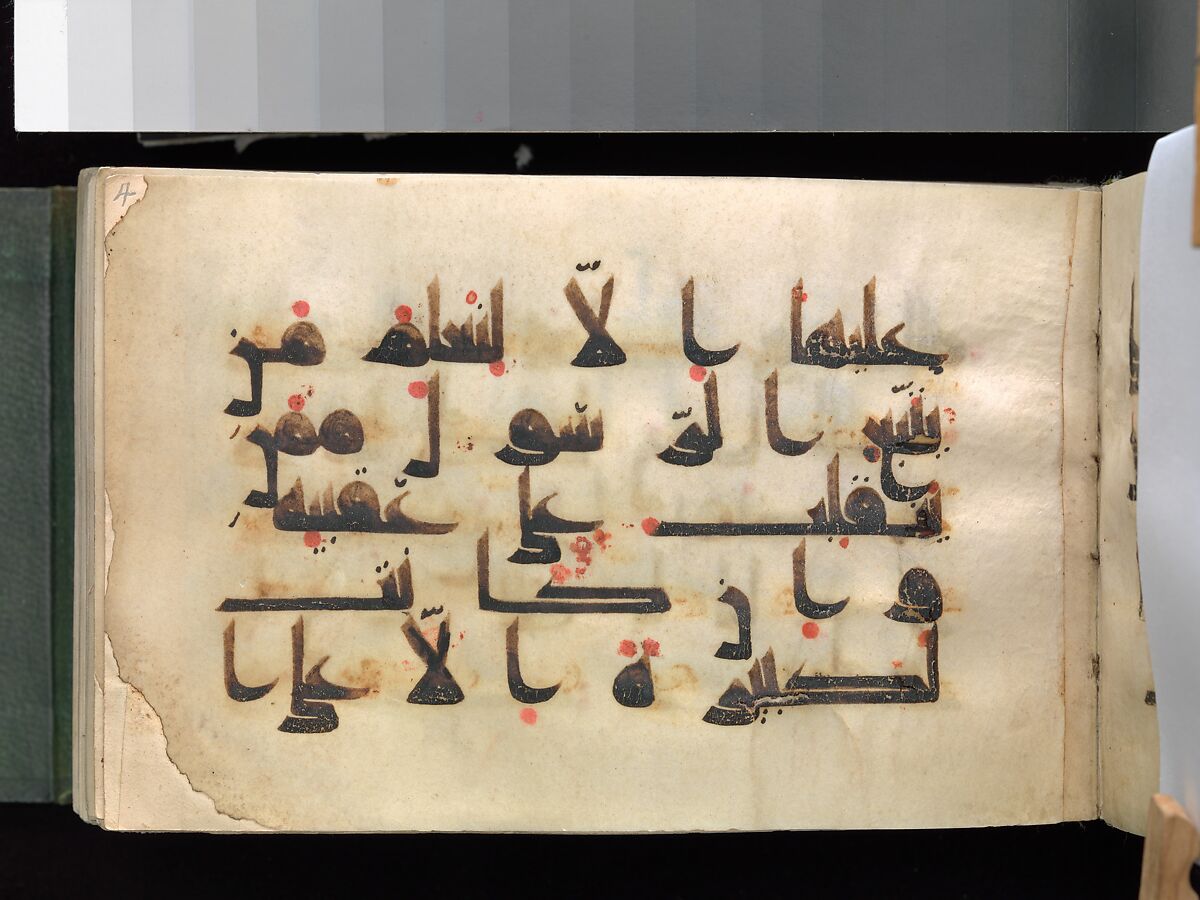 4
عليها الا لنعلم من
يتبع الرسول ممن
ينقلب على عقبيه
وان كانت
لكبيرة الا على ا